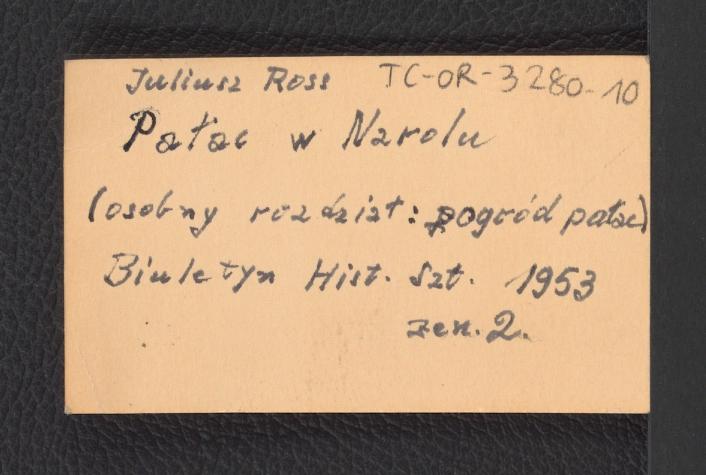 Juliusz Ross TC-OR-3280-10
Pałac w Narolu
(osobny rozdział: pogród pałac)
Biuletyn Hist. Szt. 1953
zen. 2.